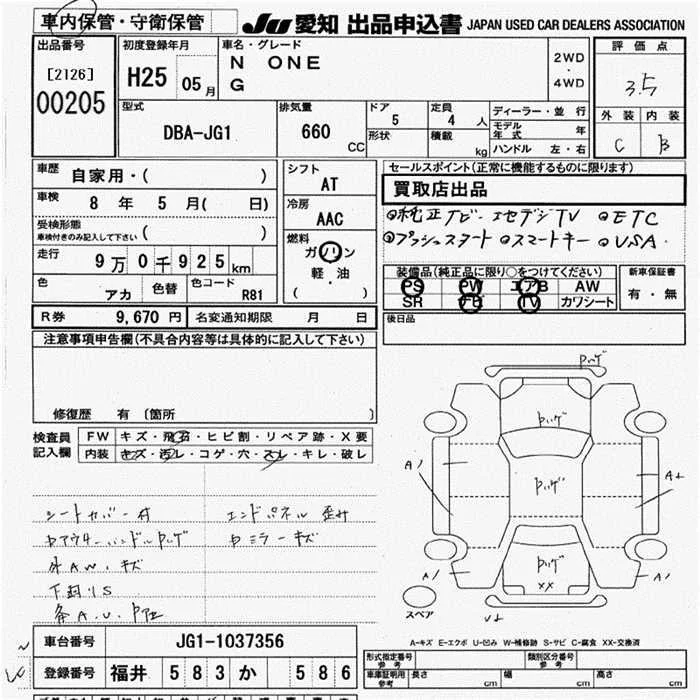 車内保管・守衛保管 JU 愛知 出品申込書 JAPAN USED CAR DEALERS ASSOCIATION
出品番号 初度登録年月 車名・グレード 評価点
[2126] H25 05月 N ONE 2WD
00205 G ・ 4WD 3.5
型式 排気量 ドア 定員 ディーラー・並 行 外装 内装
DBA-JG1 660 CC 5 4 人 モデル年式 年 C B
形状 積載 kg ハンドル 左・右
車歴 自家用・( ) シフト AT セールスポイント(正常に機能するものに限り)
車検 8 年 5 月( 日) 冷房 AAC 買取店出品
受検形態 車検付きのみ記入して下さい ( ) 燃料 ◎純正ナビ エセデジTV ◎ETC
走行 9万0千925km ガソリン ◎プッシュスタート ◎スマートキー ◎USA
軽・油 ( )
色 アカ 色替 色コード R81
装備品(純正品に限り○をつけてください) 新車保証書
PS PW エアB AW 有・無
SR TV カワシート
R券 9,670 円 名変通知期限 月 日 後日品
注意事項申告欄(不具合内容等は具体的に記入して下さい)
修復歴 有 〔箇所 〕
検査員記入欄 FW キズ・飛石・ヒビ割・リペア跡・X要
内装 キズ・汚レ・コゲ・穴・スレ・キレ・破レ
シートカバー付 エンドパネル 歪み
ヤアウターハンドルPハゲ ヤミラーキズ
外AW.キズ
下回りS
Pハゲ
Pハゲ
A1 Pハゲ A2
A1 Pハゲ A1
XX
スペア
A-キズ E-エクボ U-凹み W-補修跡 S-サビ C-腐食 XX-交換済
車台番号 JG1-1037356
登録番号 福井 583 か 586
型式指定番号 参考 類別区分番号 参考
車庫証明用 参考 長さ cm 幅 cm 高さ cm